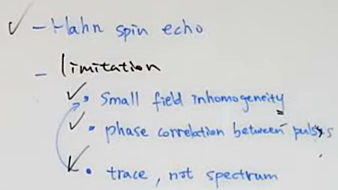 ✓ - Hahn spin echo
- limitation
✓ • Small field inhomogeneity
✓ • phase correlation between pulses
✓ • trace, not spectrum